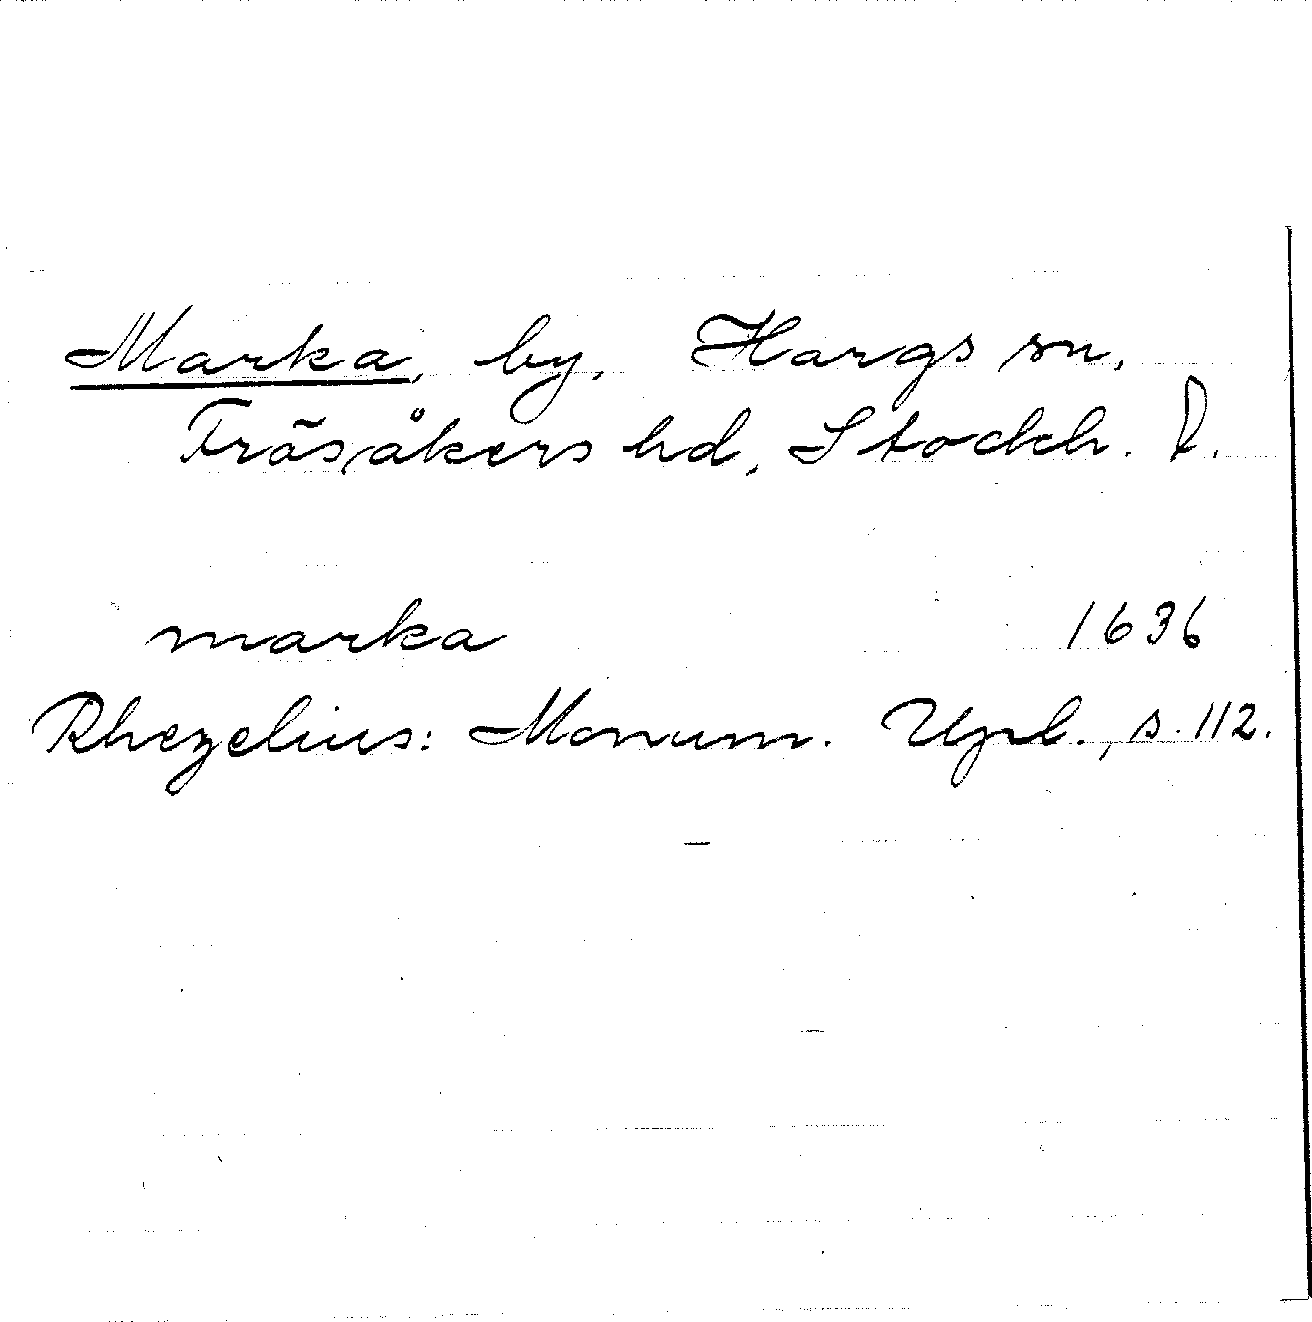 Marka, by, Hargs sn,
Fräsåkers hd, Stockh. l.
marka 1636
Rhezelius: Monum. Upl., s. 112.